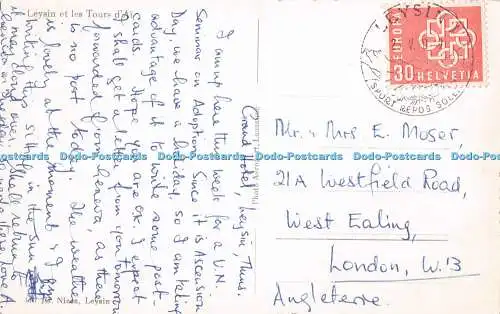 Leysin et les Tours d'Aï
Grand Hotel, Leysin, Thurs.
I am up here this week for a U.N.
Seminar on Adoption. Since it is Ascension
Day, we have a holiday, so I am taking
advantage of it to write some post-
cards. Hope you are ok. I expect
I shall get a letter from you tomorrow
forwarded from Geneva, as there
is no post today. The weather
is lovely at the moment & I am
writing this sitting in the sun
I shall return to
Love A.
Nicca, Leysin
LEYSIN
SPORT REPOS SOLEIL
EUROPA
30 HELVETIA
Mr. & Mrs E. Moser,
21A Westfield Road,
West Ealing,
London, W.13
Angleterre.
Dodo-Postcards Dodo-Postcards Dodo-Postcards Dodo-Postcards Dodo-Postcards